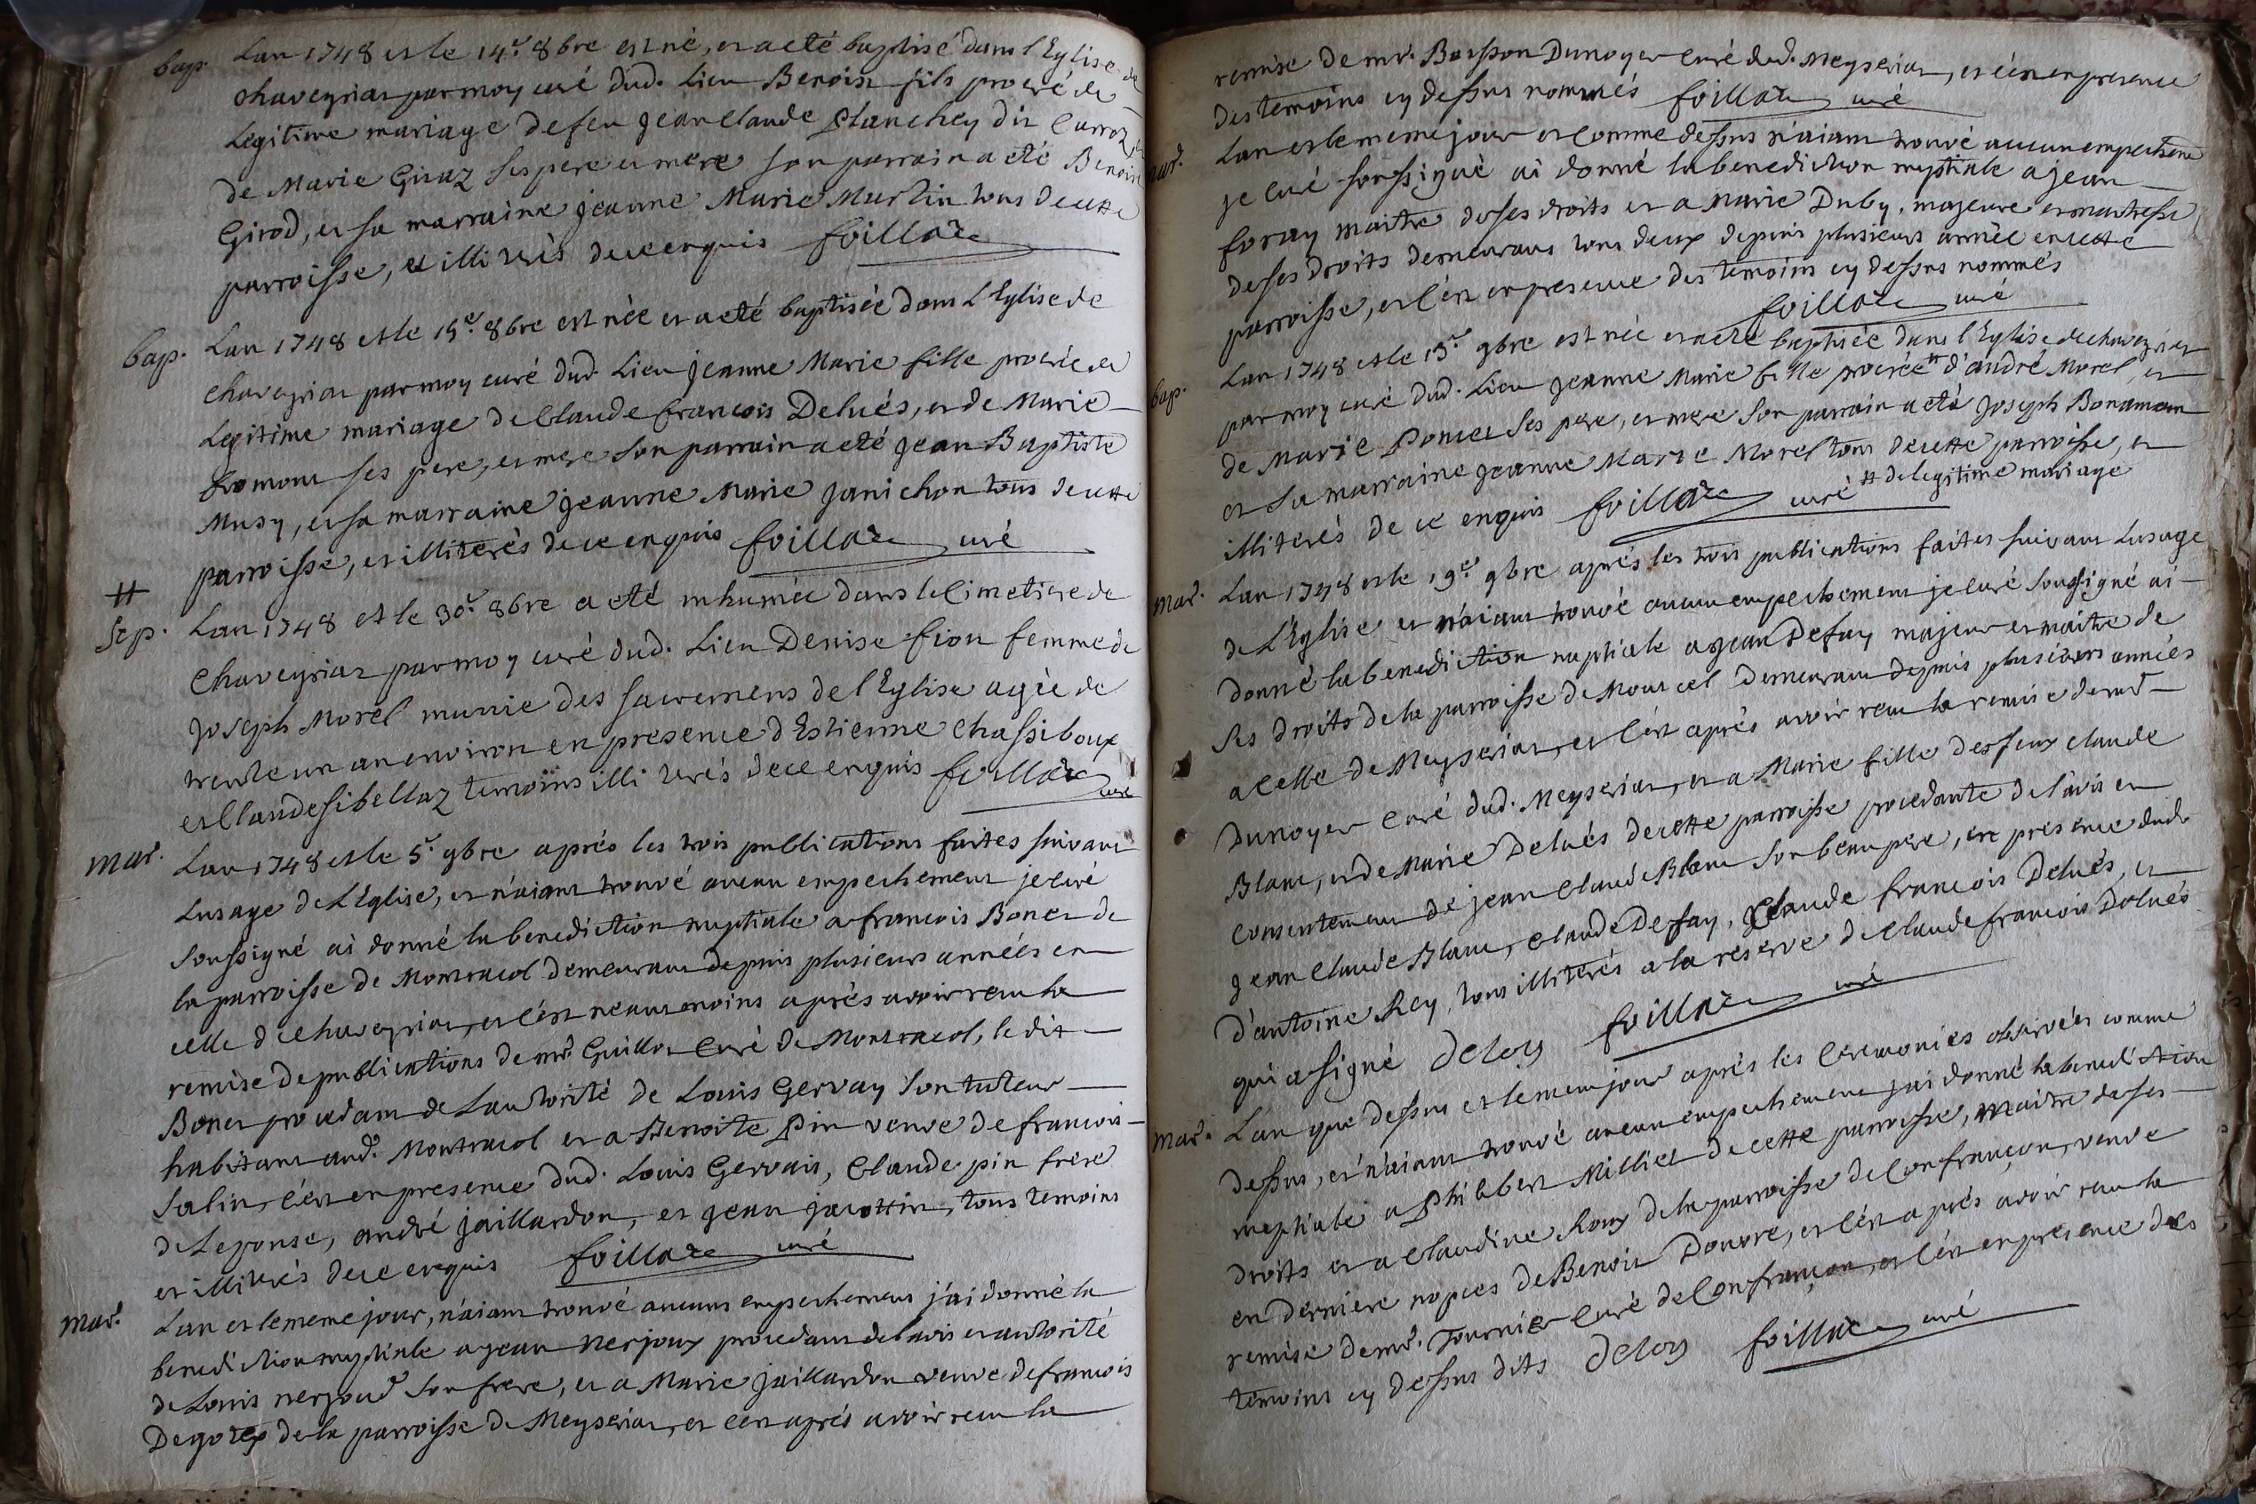 bap. Lan 1748 et le 14.e 8bre est né, et a eté baptisé dans l'Eglise de
chaveyriat par moy curé dud. Lieu Benoist fils procréé de
Legitime mariage de feu jean Claude Planchey dit Carroz, et
de Marie Giraz ses pere et mere son parrain a eté Benoist
Girod, et sa marraine jeanne Marie Martin tous de cette
parroisse, et illiterés de ce enquis foillat
bap. Lan 1748 et le 15.e 8bre est née et a eté baptisée dans L'Eglise de
chaveyriat par moy curé dud. Lieu jeanne Marie fille procréée de
Legitime mariage de Claude francois Delués, et de Marie
ses pere, et mere son parrain a eté jean Baptiste
Musy, et sa marraine jeanne Marie janichon tous de cette
parroisse, et illiterés de ce enquis foillat curé
#
sep. Lan 1748 et le 30.e 8bre a eté inhumée dans le Cimetiere de
Chaveyriat par moy curé dud. Lieu Denise fion femme de
joseph Morel munie des sacremens de l'Eglise agée de
trente un an environ en presence d'Estienne Chassiboux
et Claude sibellaz temoins illiterés de ce enquis foillat curé
mar. Lan 1748 et le 5.e 9bre aprés les trois publications faites suivant
Lusage de L'Eglise, et n'aiant trouvé aucun empechement je curé
soussigné ai donné la benediction nuptiale a francois Bonet de
la parroisse de Montracol demeurant depuis plusieurs années en
celle de Chaveyriat, et c'est neantmoins aprés avoir receu la
remise de publications de mr. Guillot Curé de Montracol, le dit
Bonet procedant de Lautorité de Louis Gervay son tuteur
habitant aud. Montracol et a Benoite Pin veuve de francois
Salin, c'est en presence dud. Louis Gervais, Claude pin frere
de Leponse, andré jaillardon, et jean jacottin, tous temoins
et illiterés de ce enquis foillat curé
mar. Lan et le meme jour, n'aiant trouvé aucuns empechemens j'ai donné la
benediction nuptiale a jean Nerjoux procedant de lavis et autorité
de Louis nerjoud son frere, et a Marie jaillardon veuve de francois
Degotex de la parroisse de Meyseriat, et c'est aprés avoir receu la
remise de mr. Boisson Dunoyer curé dud. Meyseriat, et c'est en presence
des temoins cy dessus nommés foillat curé
mar. Lan et le meme jour et comme dessus n'aiant trouvé aucun empechement
je curé soussigné ai donné la benediction nuptiale a jean
foray maitre de ses droits et a Marie Duby, majeure et maitresse
de ses droits demeurans tous deux depuis plusieurs année en cette
parroisse, et c'est en presence des temoins cy dessus nommés
foillat curé
bap. Lan 1748 et le 15.e 9bre est née et a eté baptisée dans l'Eglise de chaveyriat
par moy curé dud. Lieu jeanne Marie fille procréée # d'andré Morel, et
de Marie Poncet ses pere, et mere son parrain a eté joseph Bonamour
et sa marraine jeanne Marie Morel tous de cette parroisse, et
illiterés de ce enquis foillat curé # de legitime mariage
mar. Lan 1748 et le 19.e 9bre aprés les trois publications faites suivant Lusage
de L'Eglise et n'aiant trouvé aucun empechement je curé soussigné ai
donné la benediction nuptiale a jean Defay majeur et maitre de
ses droits de la parroisse de Moncel demeurant depuis plusieurs années
a celle de Meyseriat, et c'est aprés avoir receu la remise de mr.
Dunoyer Curé dud. Meyseriat, et a Marie fille des feux claude
Blanc, et de Marie Delués de cette parroisse procedante de l'avis et
consentement de jean Claude Blanc son beau pere, en presence dud.
jean Claude Blanc, Claude Defay, Claude francois Delués, et
d'antoine Rey, tous illiterés a la reserve de Claude francois Delués
qui a signé Deloy foillat curé
mar. Lan que dessus et le meme jour aprés les Ceremonies observées comme
dessus, et n'aiant trouvé aucun empechement j'ai donné la benediction
nuptiale a Philibert Milliet de cette parroisse, maitre de ses
droits et a Claudine Roux de la parroisse de Confrançon, veuve
en derniere nopces de Benoit Donvre, et c'est aprés avoir receu la
remise de mr. Tournier Curé de Confrançon, et c'est en presence des
temoins cy dessus dits Deloy foillat curé